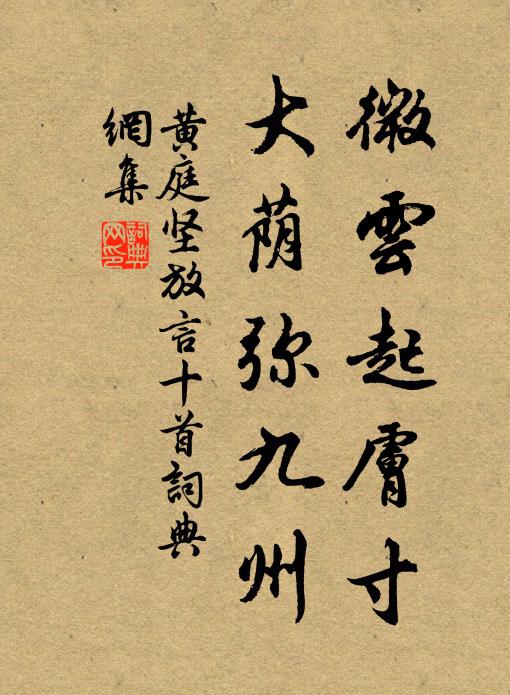 微雲起膚寸
大荫弥九州
黄庭坚放言十首詞典
網集
詞典
网印